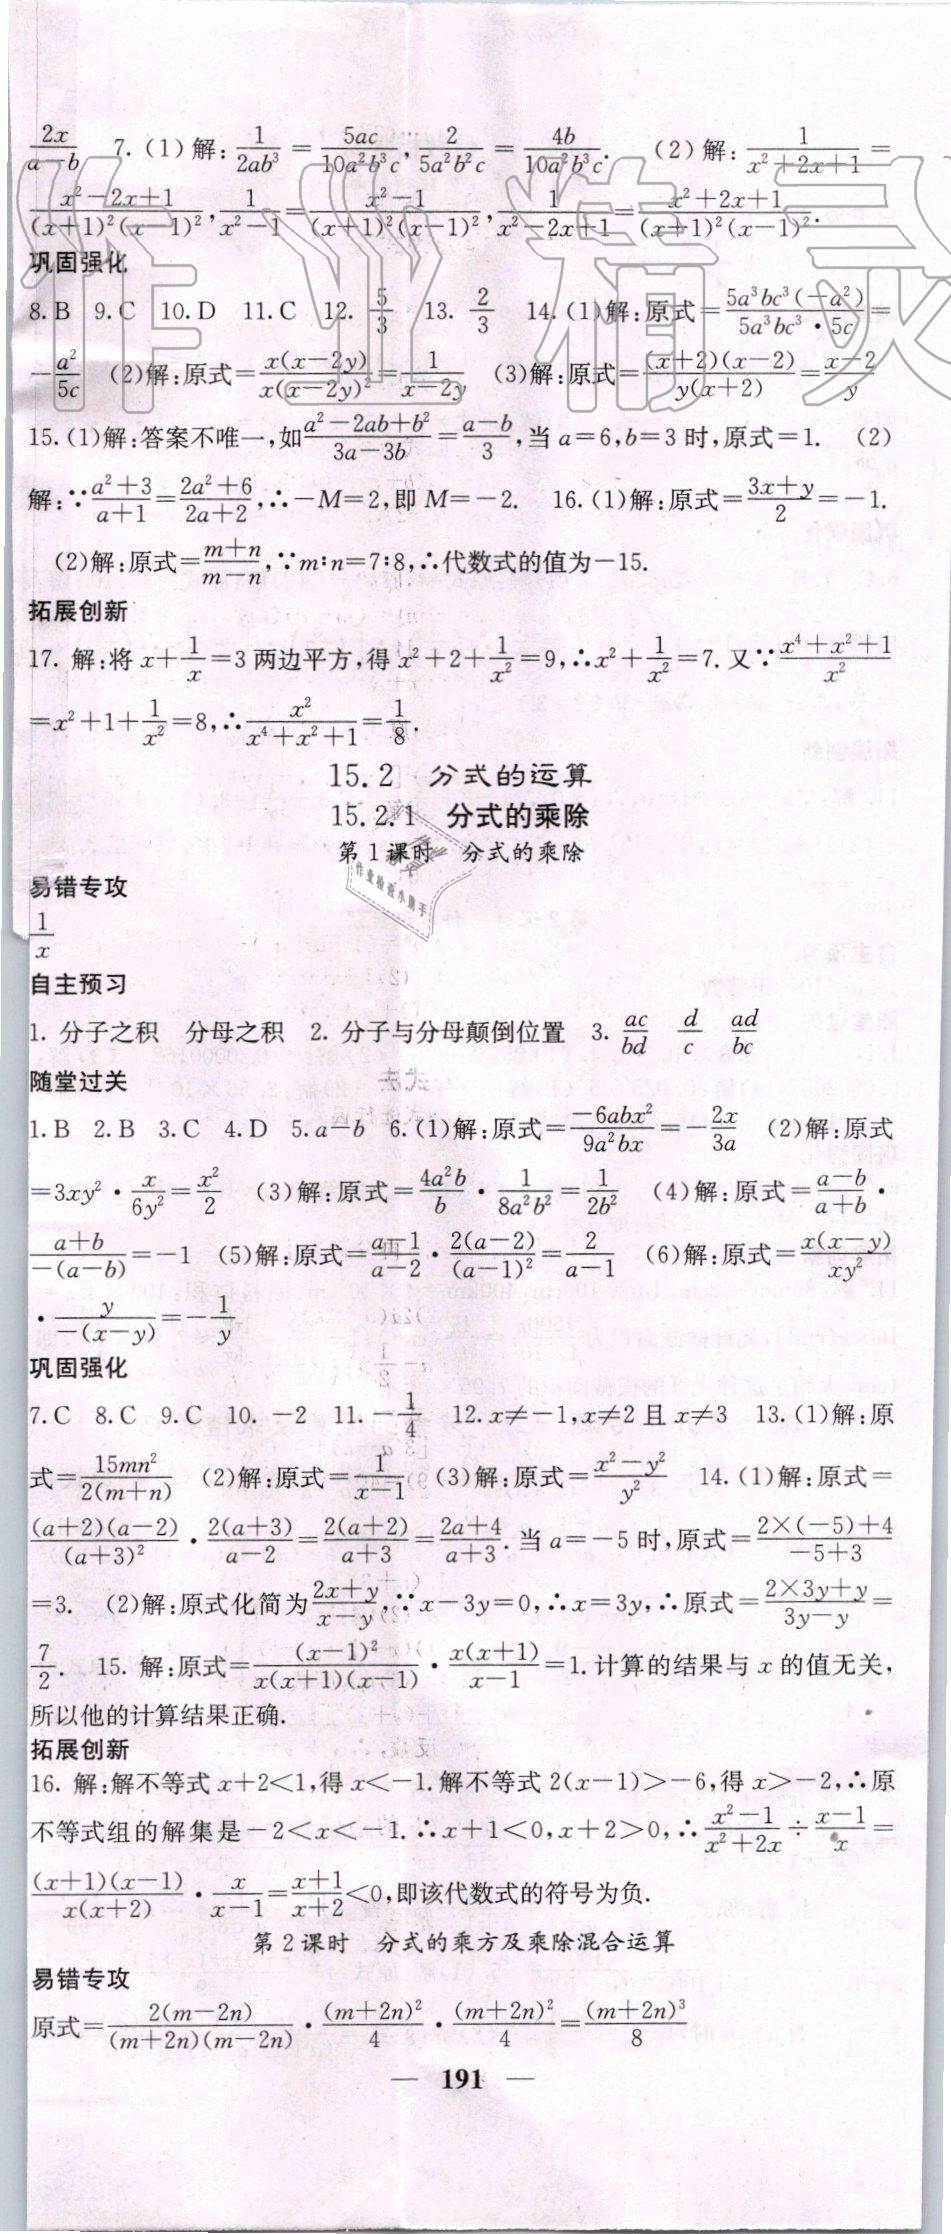 2x/(a-b)  7.(1)解:1/(2ab³)=5ac/(10a²b³c),2/(5a²b²c)=4b/(10a²b³c).  (2)解:1/(x²+2x+1)=
(x²-2x+1)/((x+1)²(x-1)²),1/(x²-1)=(x²-1)/((x+1)²(x-1)²),1/(x²-2x+1)=(x²+2x+1)/((x+1)²(x-1)²).
巩固强化
8.B  9.C  10.D  11.C  12. 5/3  13. 2/3  14.(1)解:原式=5a³bc³(-a²)/(5a³bc³·5c)=
-a²/(5c)  (2)解:原式=x(x-2y)/(x(x-2y)²)=1/(x-2y)  (3)解:原式=(x+2)(x-2)/(y(x+2))=(x-2)/y
15.(1)解:答案不唯一,如(a²-2ab+b²)/(3a-3b)=(a-b)/3,当a=6,b=3时,原式=1.  (2)
解:∵(a²+3)/(a+1)=(2a²+6)/(2a+2),∴-M=2,即M=-2.  16.(1)解:原式=(3x+y)/2=-1.
(2)解:原式=(m+n)/(m-n),∵m∶n=7∶8,∴代数式的值为-15.
拓展创新
17. 解:将x+1/x=3两边平方,得x²+2+1/x²=9,∴x²+1/x²=7.又∵(x⁴+x²+1)/x²
=x²+1+1/x²=8,∴x²/(x⁴+x²+1)=1/8.
15.2  分式的运算
15.2.1  分式的乘除
第1课时  分式的乘除
易错专攻
1/x
自主预习
1. 分子之积  分母之积  2. 分子与分母颠倒位置  3. ac/bd  d/c  ad/bc
随堂过关
1.B  2.B  3.C  4.D  5.a-b  6.(1)解:原式=-6abx²/(9a²bx)=-2x/(3a)  (2)解:原式
=3xy²·x/(6y²)=x²/2  (3)解:原式=4a²b/b·1/(8a²b²)=1/(2b²)  (4)解:原式=(a-b)/(a+b)·
(a+b)/(-(a-b))=-1  (5)解:原式=(a-1)/(a-2)·2(a-2)/(a-1)²=2/(a-1)  (6)解:原式=x(x-y)/(xy²)
·y/(-(x-y))=-1/y
巩固强化
7.C  8.C  9.C  10. -2  11. -1/4  12.x≠-1,x≠2且x≠3  13.(1)解:原
式=15mn²/(2(m+n))  (2)解:原式=1/(x-1)  (3)解:原式=(x²-y²)/y²  14.(1)解:原式=
(a+2)(a-2)/(a+3)²·2(a+3)/(a-2)=2(a+2)/(a+3)=(2a+4)/(a+3).当a=-5时,原式=(2×(-5)+4)/(-5+3)
=3.  (2)解:原式化简为(2x+y)/(x-y),∵x-3y=0,∴x=3y,∴原式=(2×3y+y)/(3y-y)=
7/2.  15. 解:原式=(x-1)²/(x(x+1)(x-1))·x(x+1)/(x-1)=1.计算的结果与x的值无关,
所以他的计算结果正确.
拓展创新
16. 解:解不等式x+2<1,得x<-1.解不等式2(x-1)>-6,得x>-2,∴原
不等式组的解集是-2<x<-1.∴x+1<0,x+2>0,∴(x²-1)/(x²+2x)÷(x-1)/x=
(x+1)(x-1)/(x(x+2))·x/(x-1)=(x+1)/(x+2)<0,即该代数式的符号为负.
第2课时  分式的乘方及乘除混合运算
易错专攻
原式=2(m-2n)/((m+2n)(m-2n))·(m+2n)²/4·(m+2n)²/4=(m+2n)³/8
— 191 —
作业精灵
作业检查小助手